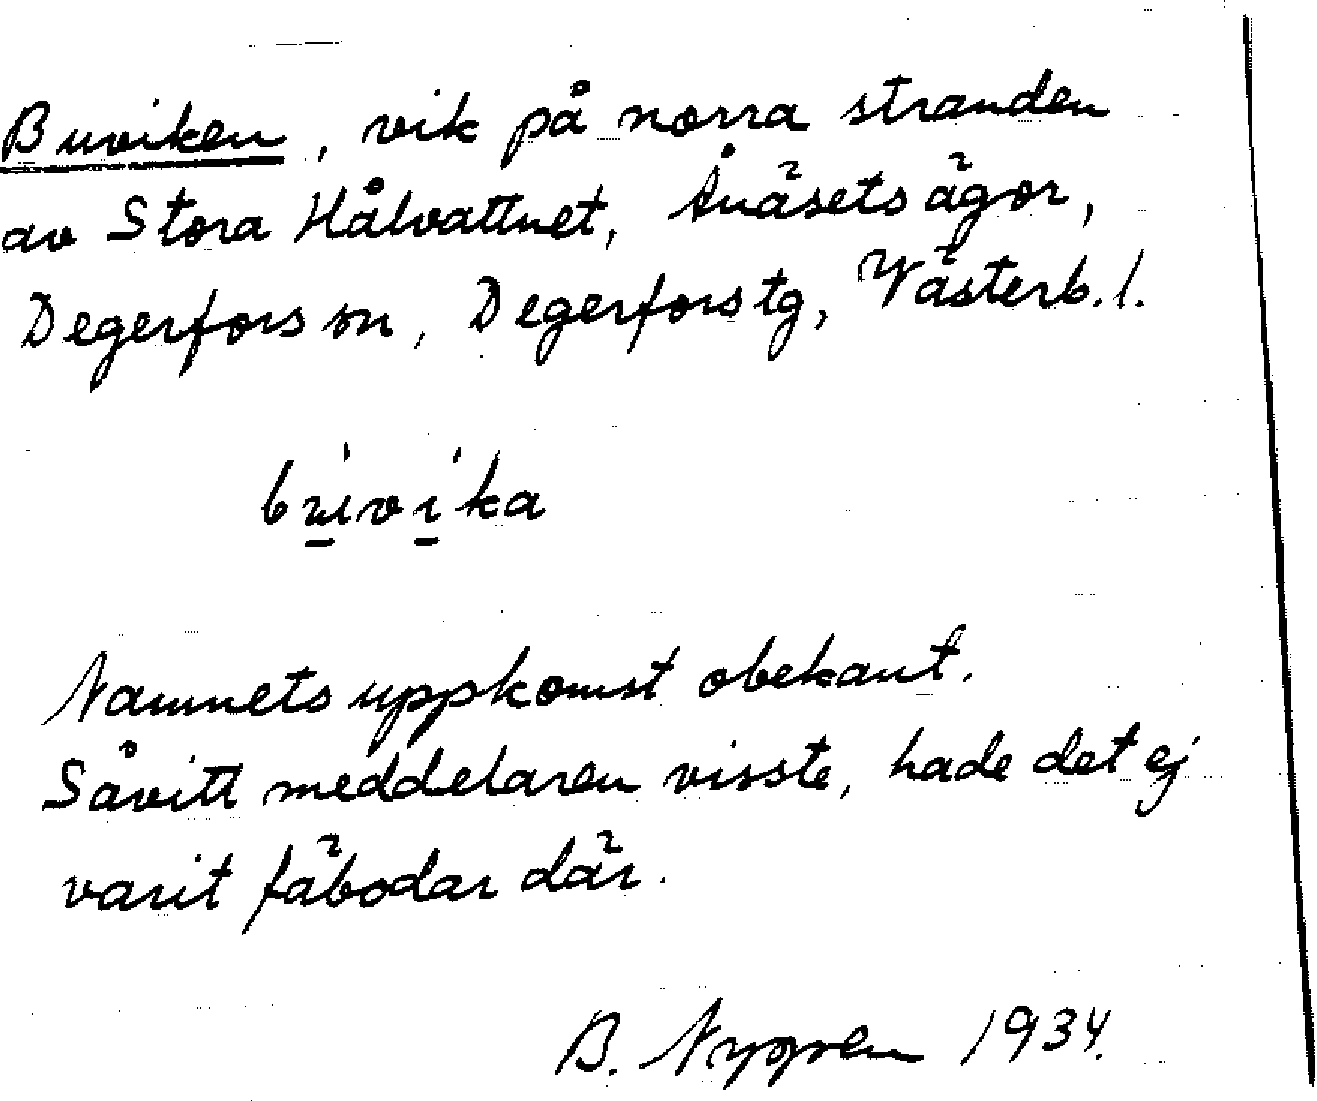 Buviken, vik på norra stranden
av Stora Hålvattnet, Ånäsets ägor,
Degerfors sn, Degerfors tg, Västerb. l.
Namnets uppkomst obekant.
Såvitt meddelaren visste, hade det ej
varit fäbodar där.
B. Nygren 1934.